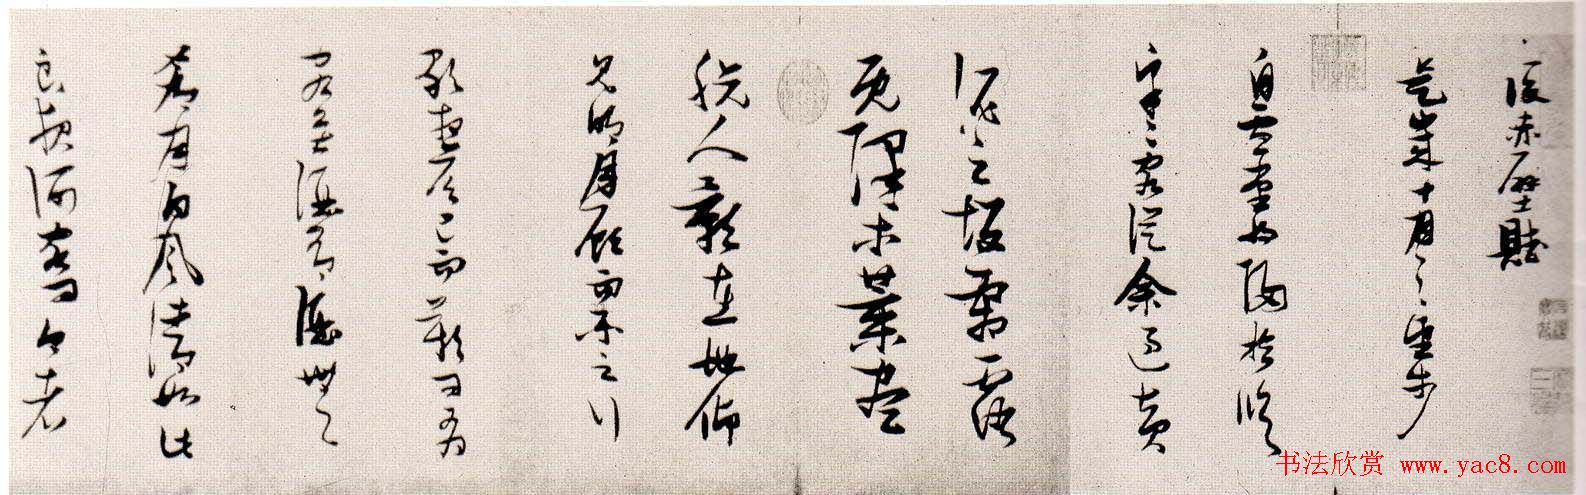 後赤壁賦
是歲十月之望步
自雪堂將歸於臨
皋二客從余過黃
泥之坂霜露
既降木葉盡
脫人影在地仰
見明月顧而樂之行
歌相答已而歎曰有
客無酒有酒無
肴月白風清如此
良夜何客曰今者
书法欣赏 www.yac8.com